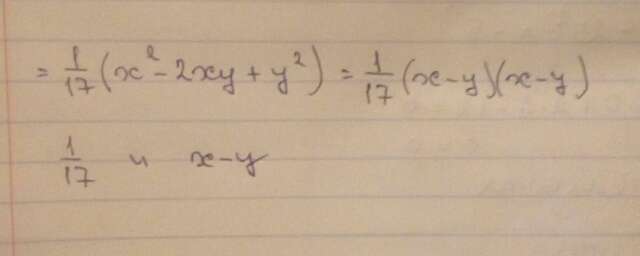 = 1/17 (x² - 2xy + y²) = 1/17 (x-y)(x-y)
1/17 и x-y